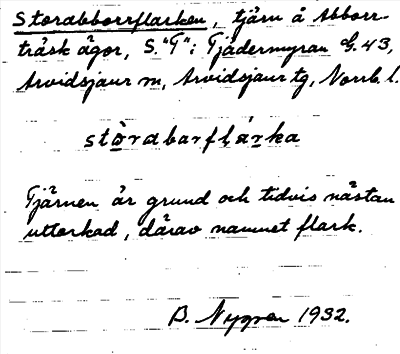 Storabborrflarken, tjärn å Abborr-
träsk ägor, S. "G": Tjädermyran G. 43,
Arvidsjaur sn, Arvidsjaur tg, Norrb. l.
stòrdbarflárka
Tjärnen är grund och tidvis nästan
uttorkad, därav namnet flark.
B. Nygren 1932.